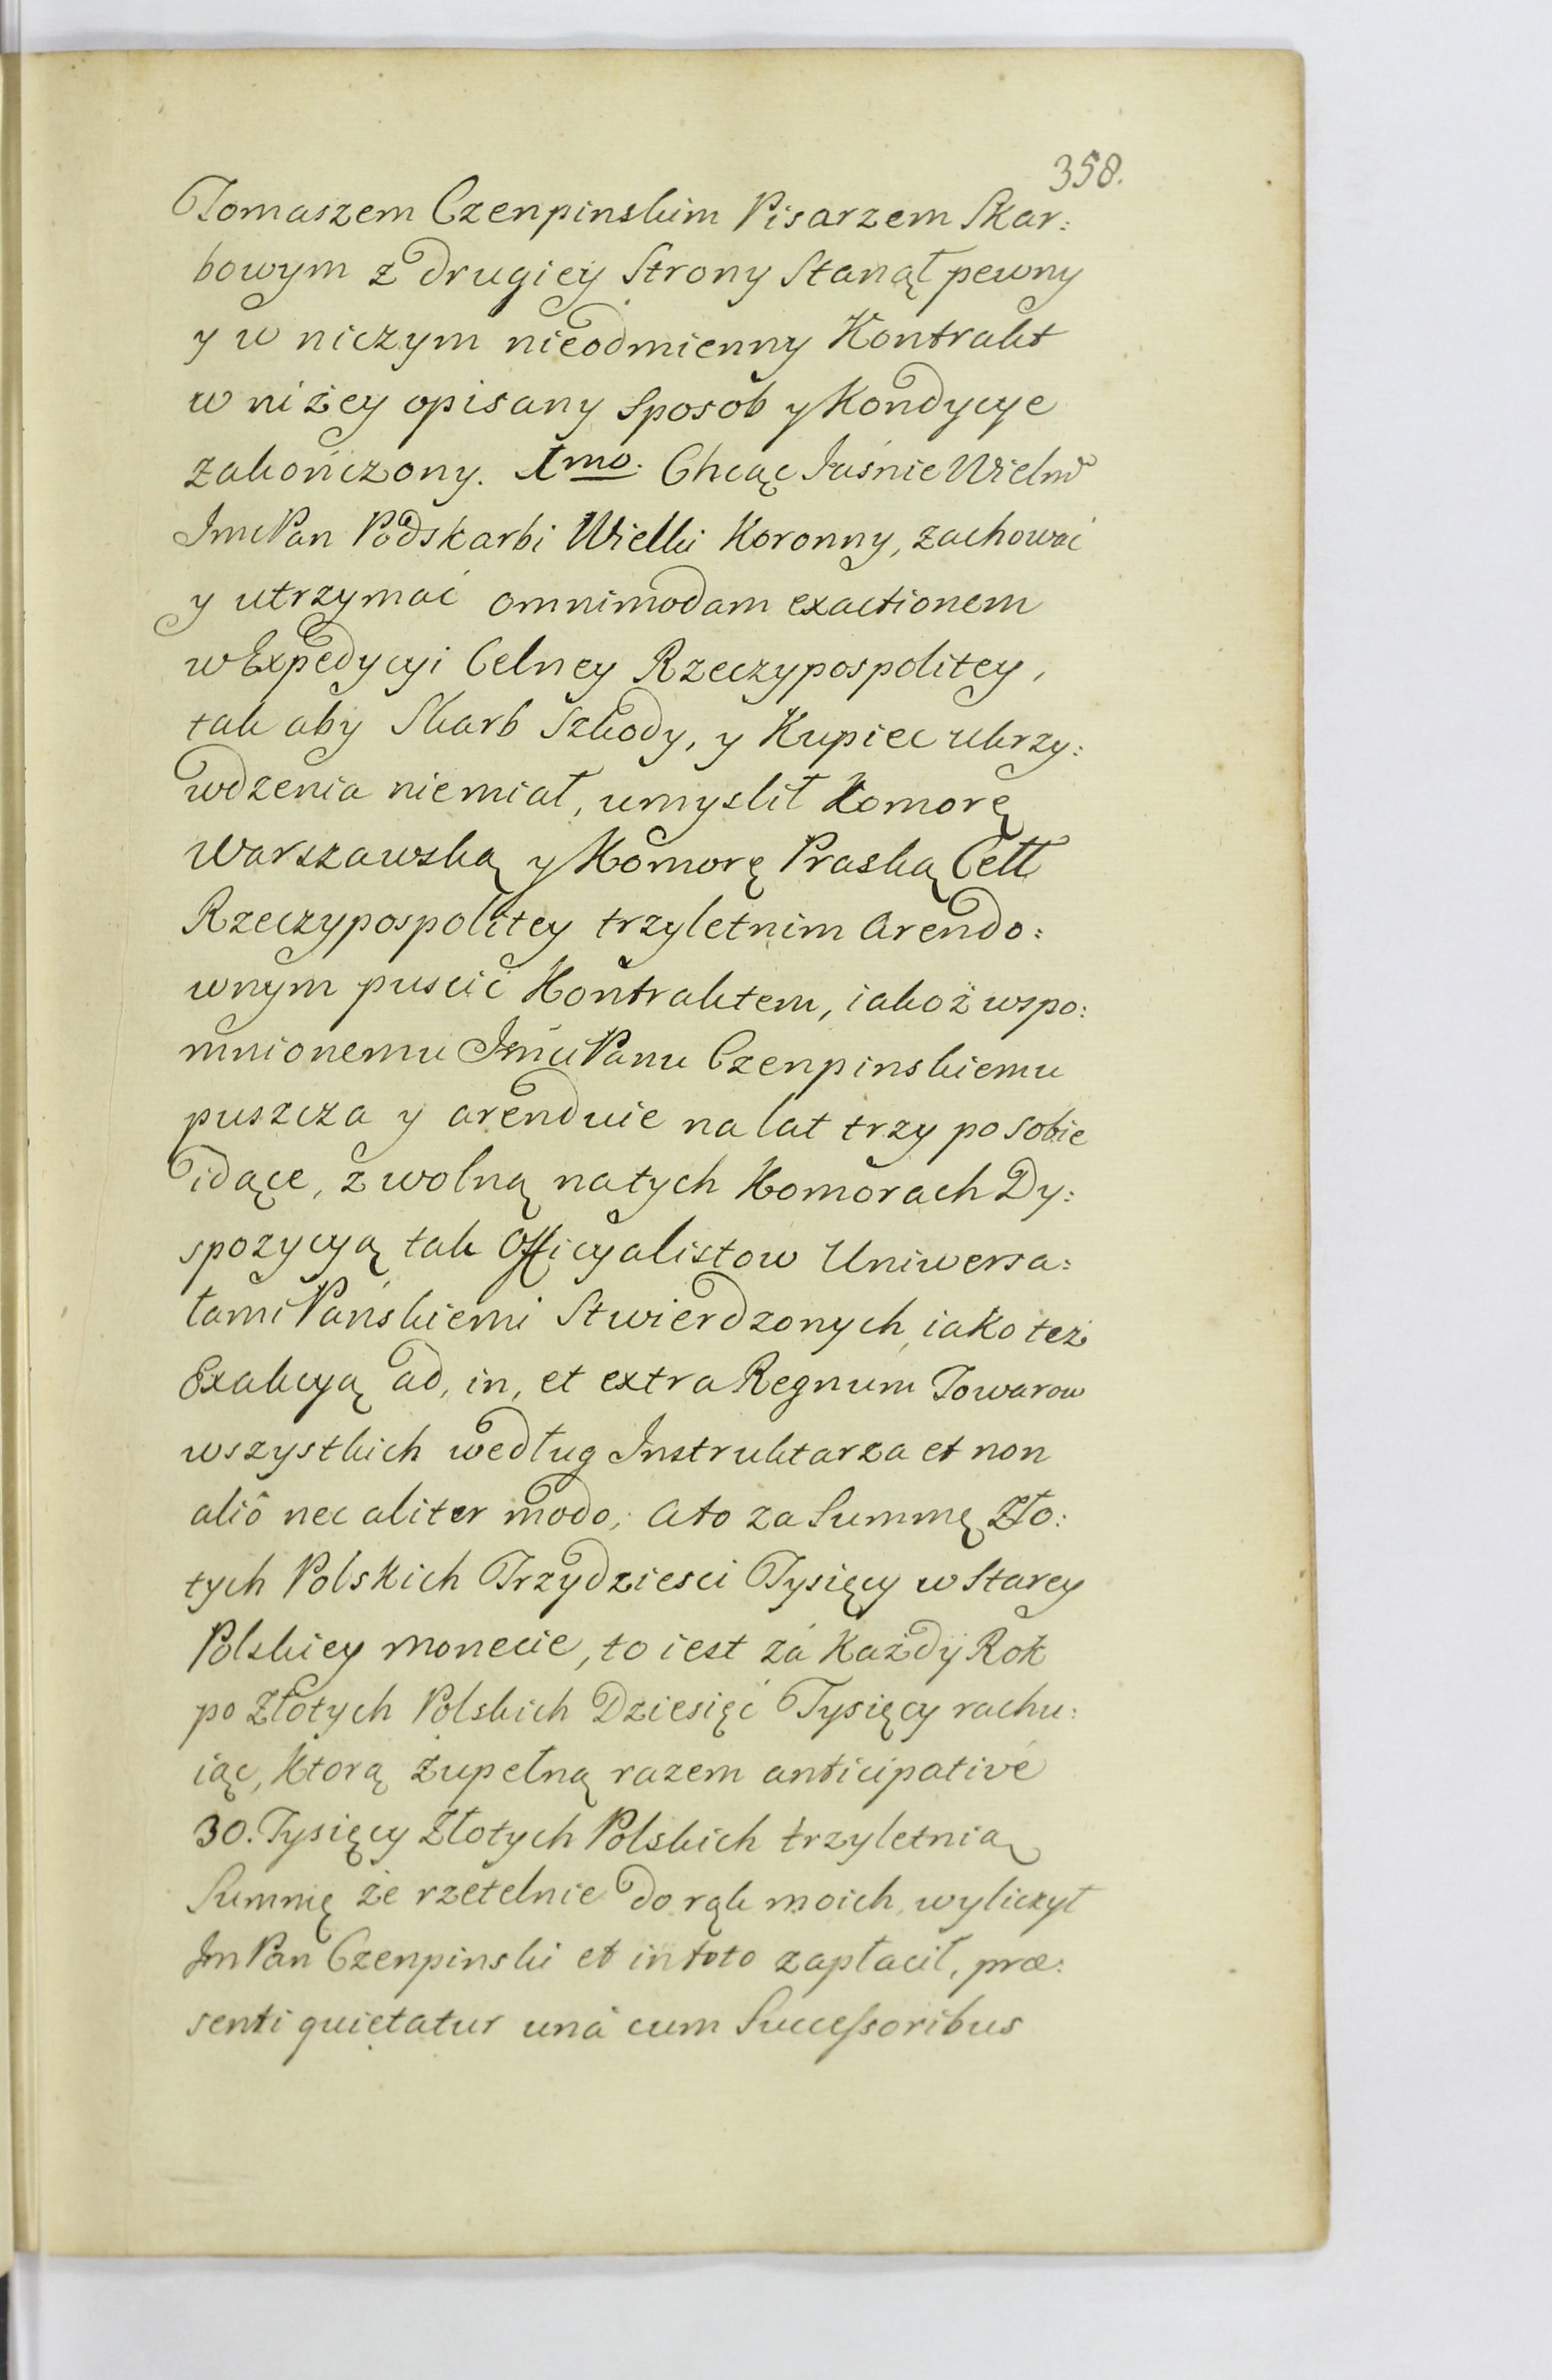 358.
Tomaszem Czenpinskim Pisarzem Skar:
bowym z drugiey Strony Stanął pewny
y w niczym nieodmienny Kontrakt
w niżey opisany Sposob y Kondycye
zakończony. 1mo. Chcąc Jaśnie Wielm̃
Jmc Pan Podskarbi Wielki Koronny, zachować
y utrzymać omnimodam exactionem
w Expedycyi Celney Rzeczypospolitey,
tak aby Skarb Szkody, y Kupiec ukrzy:
wdzenia niemiał, umyslił Komorę
Warszawską y Komorę Praską Cełł
Rzeczypospolitey trzyletnim Arendo:
wnym puscić Kontraktem, iakoż wspo:
mnionemu Jmci Panu Czenpinskiemu
puszcza y arenduie na lat trzy po sobie
idące, z wolną na tych Komorach Dy:
spozycyą tak Officyalistow Uniwersa:
łami Pańskiemi Stwierdzonych, iako też
Exakcyą ad, in, et extra Regnum Towarow
wszystkich według Instruktarza et non
aliô nec aliter modo; Ato za Summę Zło:
tych Polskich Trzydziesci Tysięcy w Starey
Polskiey Monecie, to iest zá Każdy Rok
po Złotych Polskich Dziesięć Tysięcy rachu:
iąc, Ktorą zupełną razem anticipativé
30. Tysięcy Złotych Polskich trzyletnią
Summę że rzetelnie do rąk moich wyliczył
Jm Pan Czenpinski et in toto zapłacił, præ:
senti quietatur unà cum Successoribus